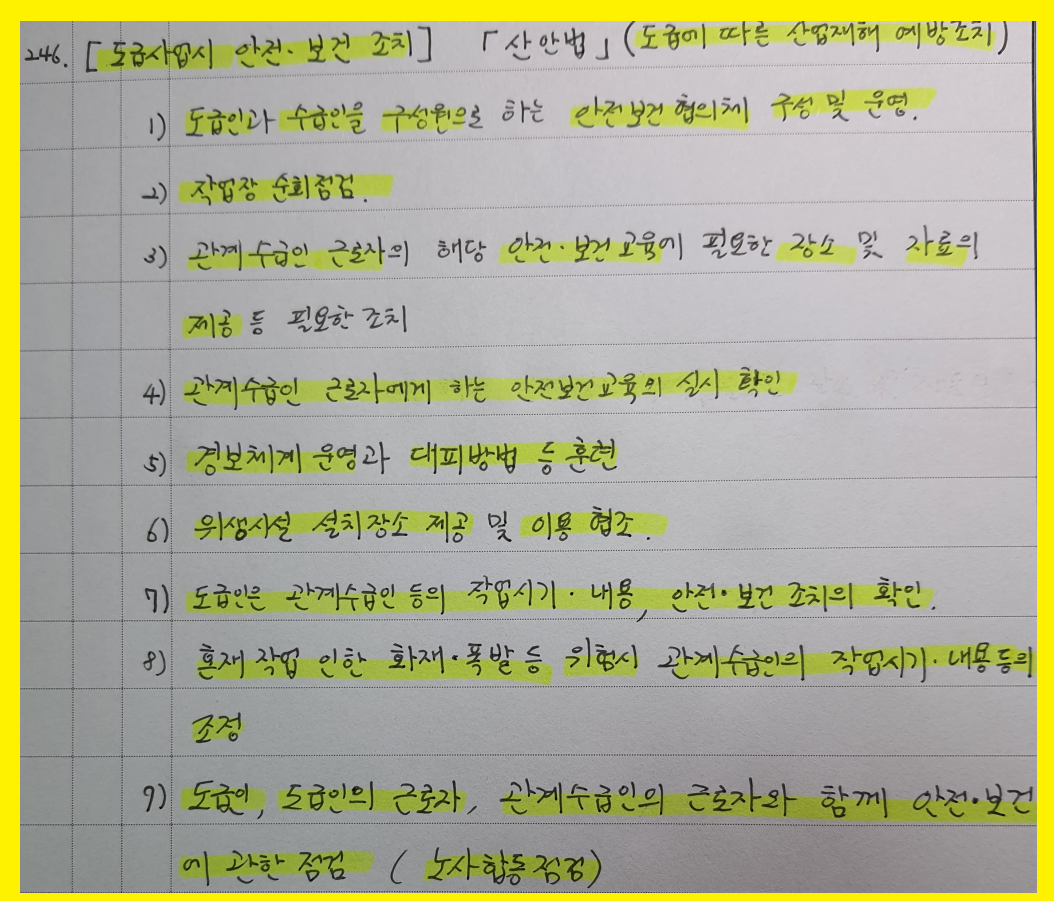 246. [도급사업시 안전·보건 조치] 「산안법」(도급에 따른 산업재해 예방조치)
1) 도급인과 수급인을 구성원으로 하는 안전보건협의체 구성 및 운영.
2) 작업장 순회점검.
3) 관계수급인 근로자의 해당 안전·보건교육에 필요한 장소 및 자료의
제공 등 필요한 조치
4) 관계수급인 근로자에게 하는 안전보건교육의 실시 확인
5) 경보체계 운영과 대피방법 등 훈련
6) 위생시설 설치장소 제공 및 이용 협조.
7) 도급인은 관계수급인 등의 작업시기·내용, 안전·보건 조치의 확인.
8) 혼재작업 인한 화재·폭발 등 위험시 관계수급인의 작업시기·내용등의
조정
9) 도급인, 도급인의 근로자, 관계수급인의 근로자와 함께 안전·보건
에 관한 점검 (노사합동점검)